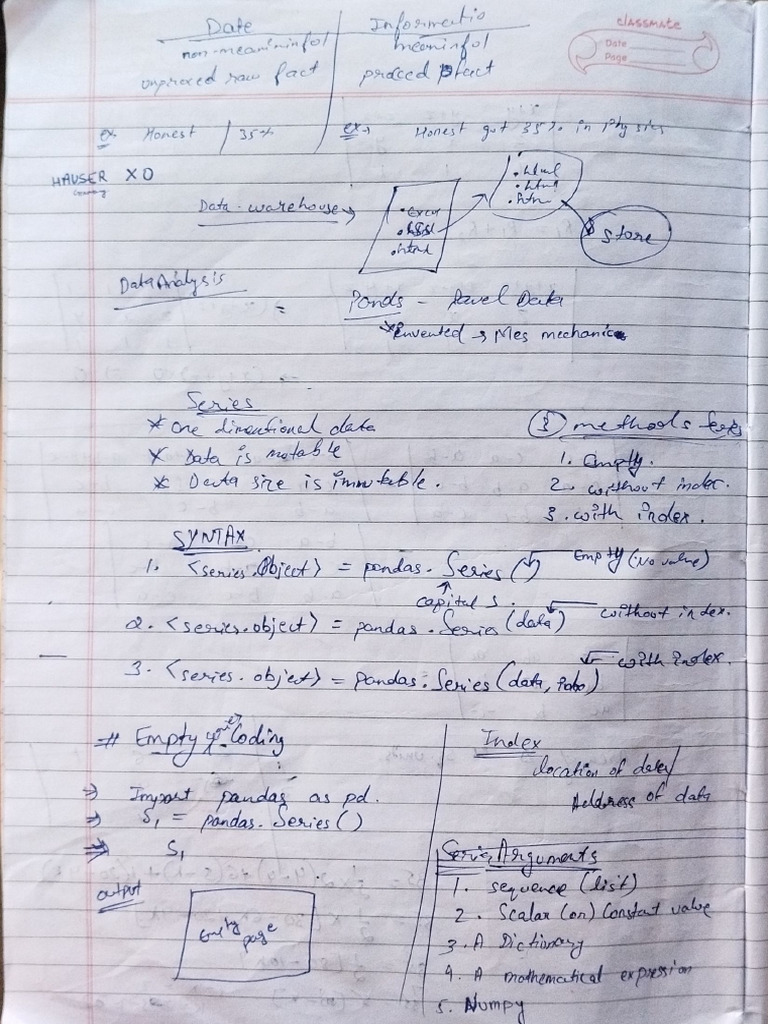 Date
Informatio
classmate
Date
Page
non-meanininful
meaninful
unproxed raw fact
proded fact
ex Honest / 35%
ex→ Honest got 35% in Physics
HAUSER XO
Data-warehouse→
.html
.html
.htm
.html
store
Data Analysis
= Pands - Pavel Data
*Envented → Mes mechanics
Series
* One dimentional data
* Data is mutable
* Data size is immutable.
③ methods
1. Empty.
2. without index.
3. with index.
SYNTAX
1. <series.object> = pandas.Series()
Empty (No value)
capital S.
2. <series.object> = pandas.Series(data)
without index.
3. <series.object> = pandas.Series(data, index)
with index.
# Empty Coding
⇒ Import pandas as pd.
⇒ S1 = pandas.Series()
⇒ S1
output
Emity page
Index
location of data/
Address of data
Series Arguments
1. sequence (list)
2. Scalar (or) Constant value
3. A Dictionary
4. A mathematical expression
5. Numpy